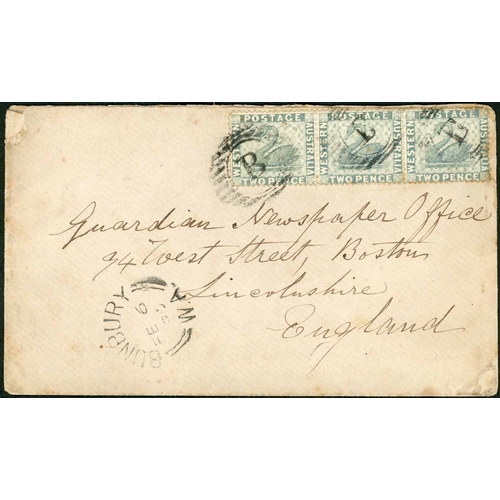 WESTERN POSTAGE AUSTRALIA TWO PENCE
WESTERN POSTAGE AUSTRALIA TWO PENCE
WESTERN POSTAGE AUSTRALIA TWO PENCE
B
Guardian Newspaper Office
34 West Street, Boston
Lincolnshire
England
BUNBURY W.A
FE 6